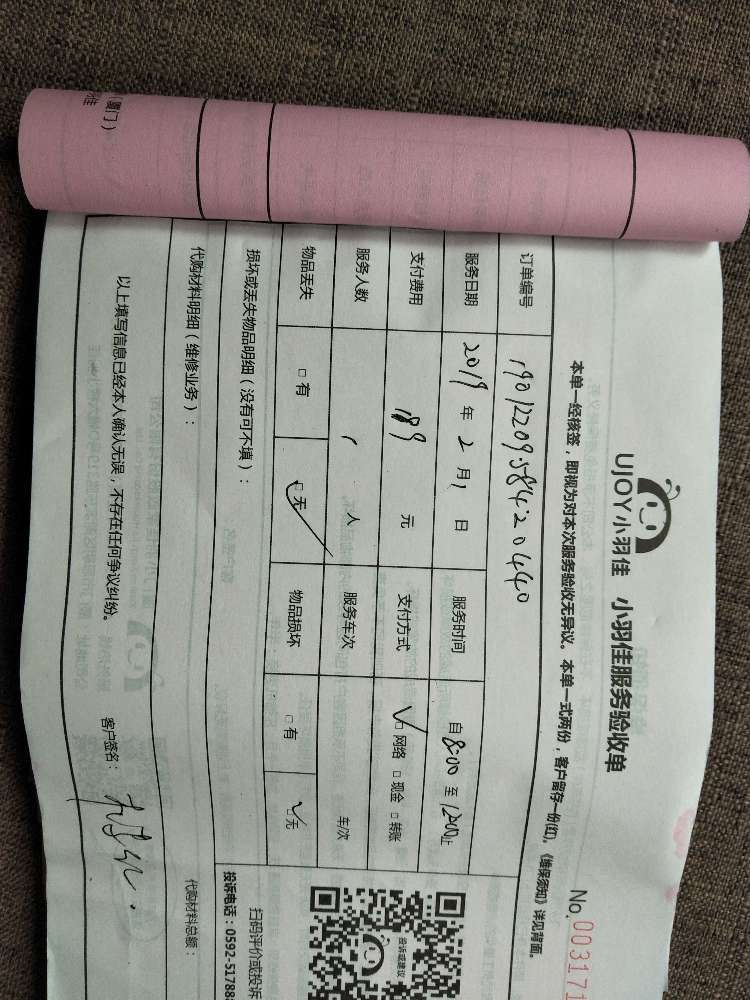 UJOY小羽佳 小羽佳服务验收单
No.003171
本单一经核签，即视为对本次服务验收无异议。本单一式两份，客户留存一份(红)。《维保须知》详见背面。
订单编号 190122095842 0440
服务日期 2019年2月1日 服务时间 自8:00至12:00止
支付费用 189元 支付方式 ☑网络 □现金 □转账
服务人数 1人 服务车次 车/次
物品丢失 □有 ☑无 物品损坏 □有 ☑无
损坏或丢失物品明细（没有可不填）：
代购材料明细（维修业务）：
代购材料总额：
以上填写信息已经本人确认无误，不存在任何争议纠纷。
客户签名：
投诉或建议
扫码评价或投诉
投诉电话：0592-51788
（厦门）
佳